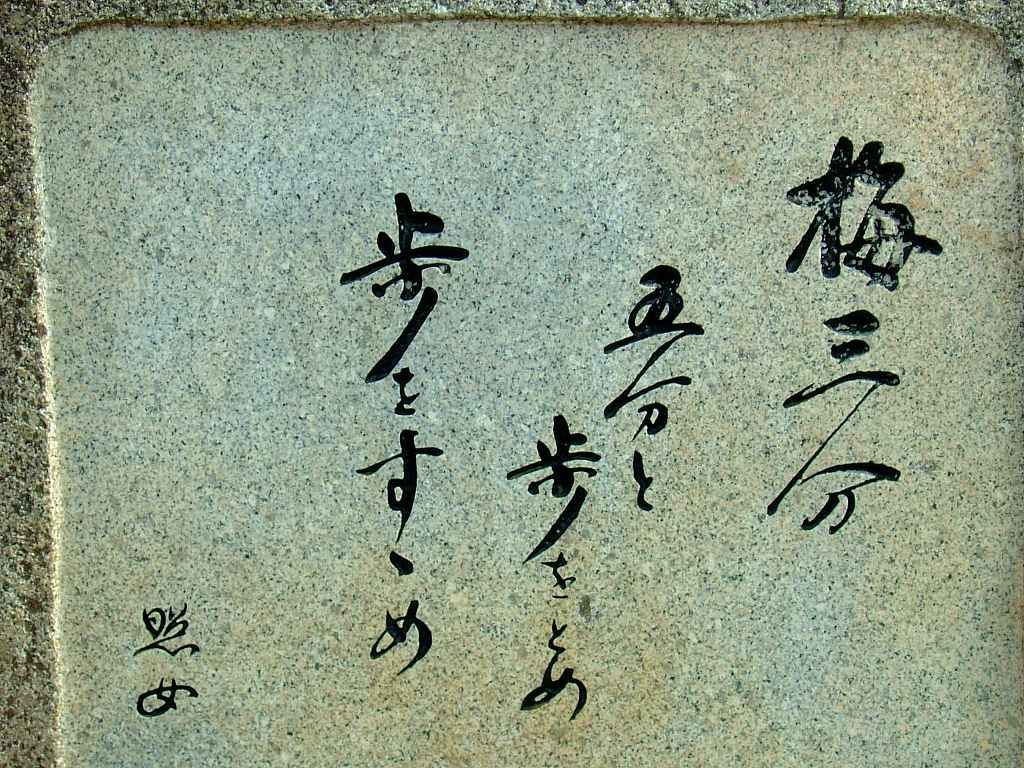 梅三分
五分と
歩をとめ
歩をすゝめ
照女